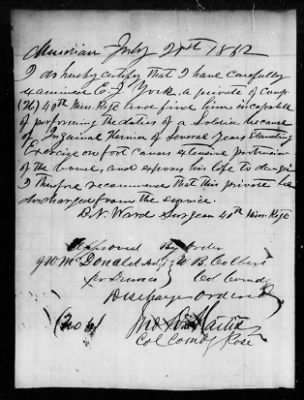 Meridian July 21st 1862
I do hereby certify that I have carefully
examined E. J. York a private of Comp
(K) 40th Miss. Regt and find him incapable
of performing the duties of a Soldier because
of Inguinal Hernia of Several years Standing
Exercise on foot causes extensive protrusion
of the bowel, and exposes his life to danger
I therefore recommend that this private be
discharged from the service.
D. N. Ward Surgeon 40th Miss Regt
Approved By order
McDonald W. B. Colbert
Col Comdg
Discharge Ordered
Jno Martin
Col Comdg Post